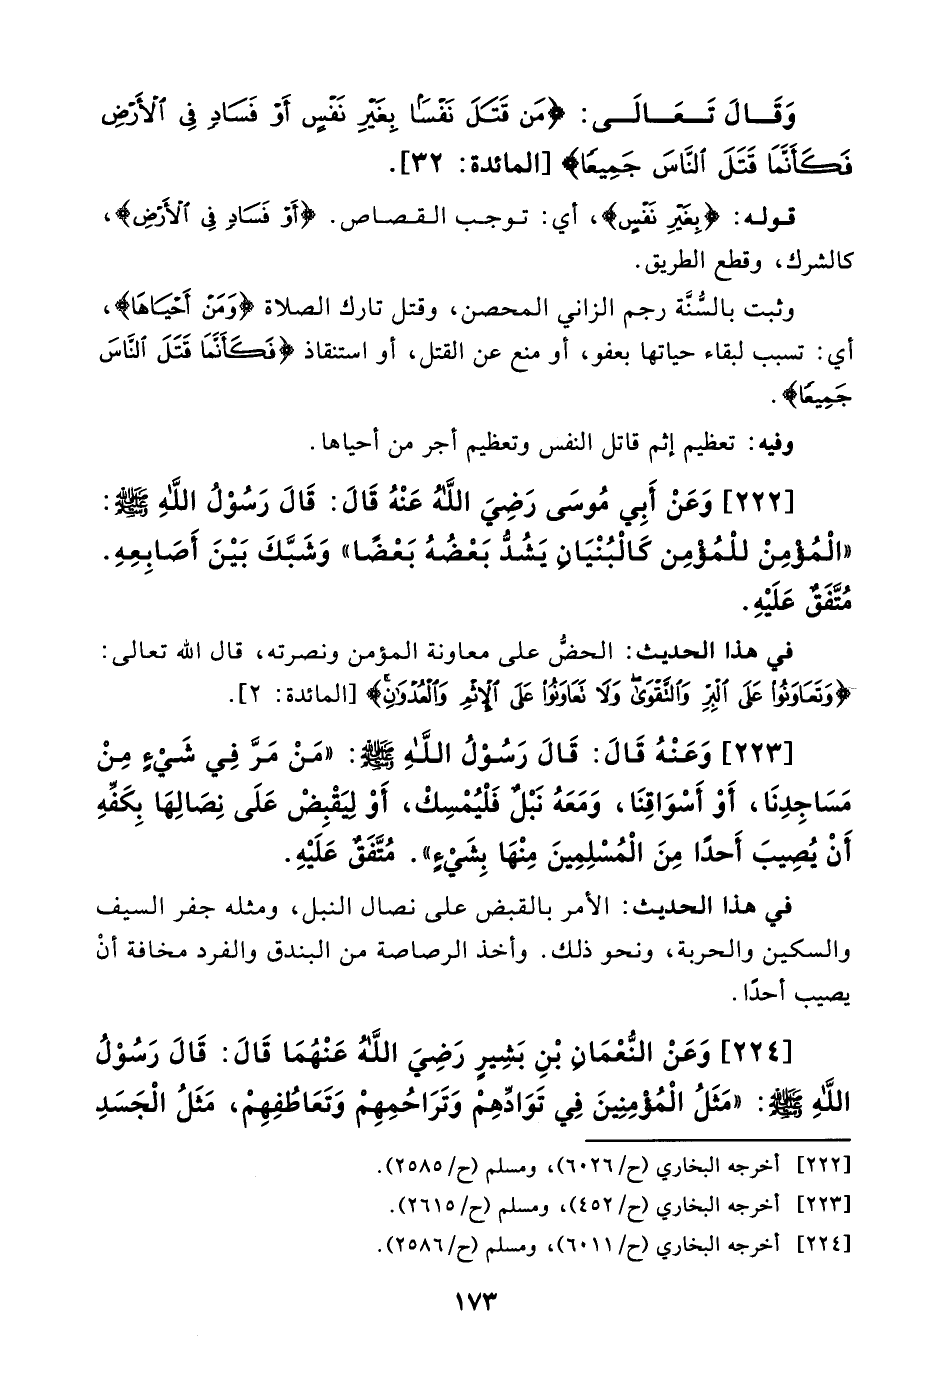 وَقَـالَ تَـعَـالَـى: ﴿مَن قَتَلَ نَفْسًا بِغَيْرِ نَفْسٍ أَوْ فَسَادٍ فِى ٱلْأَرْضِ
فَكَأَنَّمَا قَتَلَ ٱلنَّاسَ جَمِيعًا﴾ [المائدة: ٣٢].
قوله: ﴿بِغَيْرِ نَفْسٍ﴾، أي: توجب القصاص. ﴿أَوْ فَسَادٍ فِى ٱلْأَرْضِ﴾،
كالشرك، وقطع الطريق.
وثبت بالسُّنَّة رجم الزاني المحصن، وقتل تارك الصلاة ﴿وَمَنْ أَحْيَاهَا﴾،
أي: تسبب لبقاء حياتها بعفو، أو منع عن القتل، أو استنقاذ ﴿فَكَأَنَّمَا قَتَلَ ٱلنَّاسَ
جَمِيعًا﴾.
وفيه: تعظيم إثم قاتل النفس وتعظيم أجر من أحياها.
[٢٢٢] وَعَنْ أَبِي مُوسَى رَضِيَ اللَّهُ عَنْهُ قَالَ: قَالَ رَسُوْلُ اللَّهِ ﷺ:
«الْمُؤْمِنْ للْمُؤْمِن كَالْبُنْيَانِ يَشُدُّ بَعْضُهُ بَعْضًا» وَشَبَّكَ بَيْنَ أَصَابِعِهِ.
مُتَّفَقٌ عَلَيْهِ.
في هذا الحديث: الحضُّ على معاونة المؤمن ونصرته، قال الله تعالى:
﴿وَتَعَاوَنُوا۟ عَلَى ٱلْبِرِّ وَٱلتَّقْوَىٰۖ وَلَا تَعَاوَنُوا۟ عَلَى ٱلْإِثْمِ وَٱلْعُدْوَٰنِۚ﴾ [المائدة: ٢].
[٢٢٣] وَعَنْهُ قَالَ: قَالَ رَسُوْلُ اللَّهِ ﷺ: «مَنْ مَرَّ فِي شَيْءٍ مِنْ
مَسَاجِدِنَا، أَوْ أَسْوَاقِنَا، وَمَعَهُ نَبْلٌ فَلْيُمْسِكْ، أَوْ لِيَقْبِضْ عَلَى نِصَالِهَا بِكَفِّهِ
أَنْ يُصِيبَ أَحدًا مِنَ الْمُسْلِمِينَ مِنْهَا بِشَيْءٍ». مُتَّفَقٌ عَلَيْهِ.
في هذا الحديث: الأمر بالقبض على نصال النبل، ومثله جفر السيف
والسكين والحربة، ونحو ذلك. وأخذ الرصاصة من البندق والفرد مخافة أنْ
يصيب أحدًا.
[٢٢٤] وَعَنْ النُّعْمَانِ بْنِ بَشِيرٍ رَضِيَ اللَّهُ عَنْهُمَا قَالَ: قَالَ رَسُوْلُ
اللَّهِ ﷺ: «مَثَلُ الْمُؤْمِنِينَ فِي تَوَادِّهِمْ وَتَرَاحُمِهِمْ وَتَعَاطُفِهِمْ، مَثَلُ الْجَسَدِ
[٢٢٢] أخرجه البخاري (ح/٦٠٢٦)، ومسلم (ح/٢٥٨٥).
[٢٢٣] أخرجه البخاري (ح/٤٥٢)، ومسلم (ح/٢٦١٥).
[٢٢٤] أخرجه البخاري (ح/٦٠١١)، ومسلم (ح/٢٥٨٦).
١٧٣